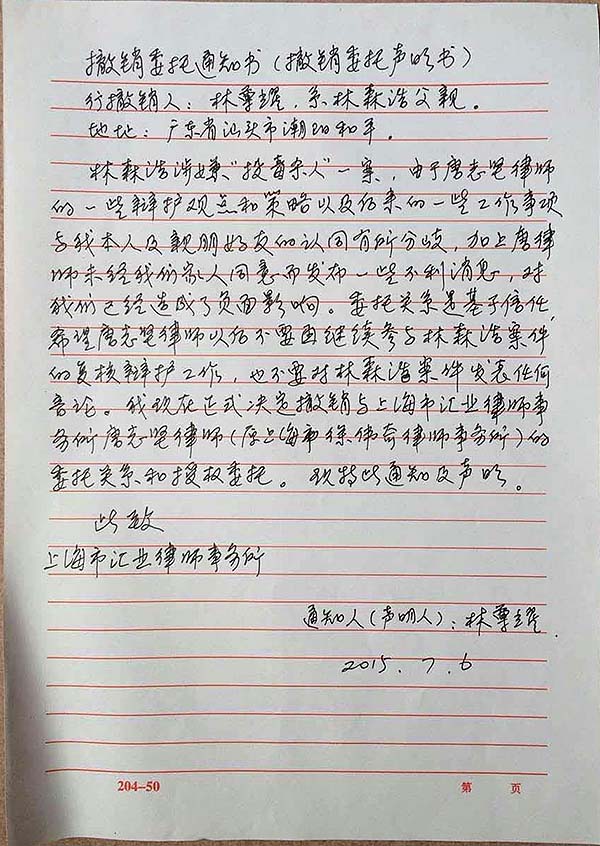 撤销委托通知书（撤销委托声明书）
行撤销人：林尊耀，系林森浩父亲。
地址：广东省汕头市潮阳和平。
林森浩涉嫌“投毒杀人”一案，由于唐志坚律师
的一些辩护观点和策略以及后来的一些工作事项
与我本人及亲朋好友的认同有所分歧，加上唐律
师未经我们家人同意而发布一些不利消息 对
我们已经造成了负面影响。委托关系是基于信任，
希望唐志坚律师以后不要再继续参与林森浩案件
的复核辩护工作，也不要对林森浩案件发表任何
言论。我现在正式决定撤销与上海市汇业律师事
务所唐志坚律师（原上海市徐伟奇律师事务所）的
委托关系和授权委托。现特此通知及声明。
此致
上海市汇业律师事务所
通知人（声明人）：林尊耀
2015.7.6
204--50
第 页